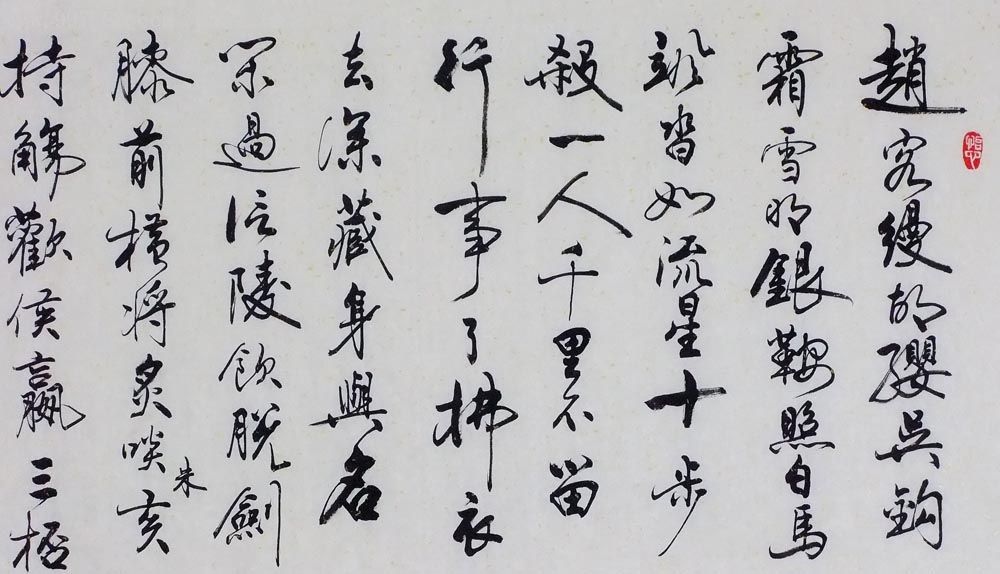 趙客縵胡纓吳鉤
霜雪明銀鞍照白馬
颯沓如流星十步
殺一人千里不留
行事了拂衣
去深藏身與名
閑過信陵飲脫劍
膝前橫將炙啖朱亥
持觴歡侯嬴三桮